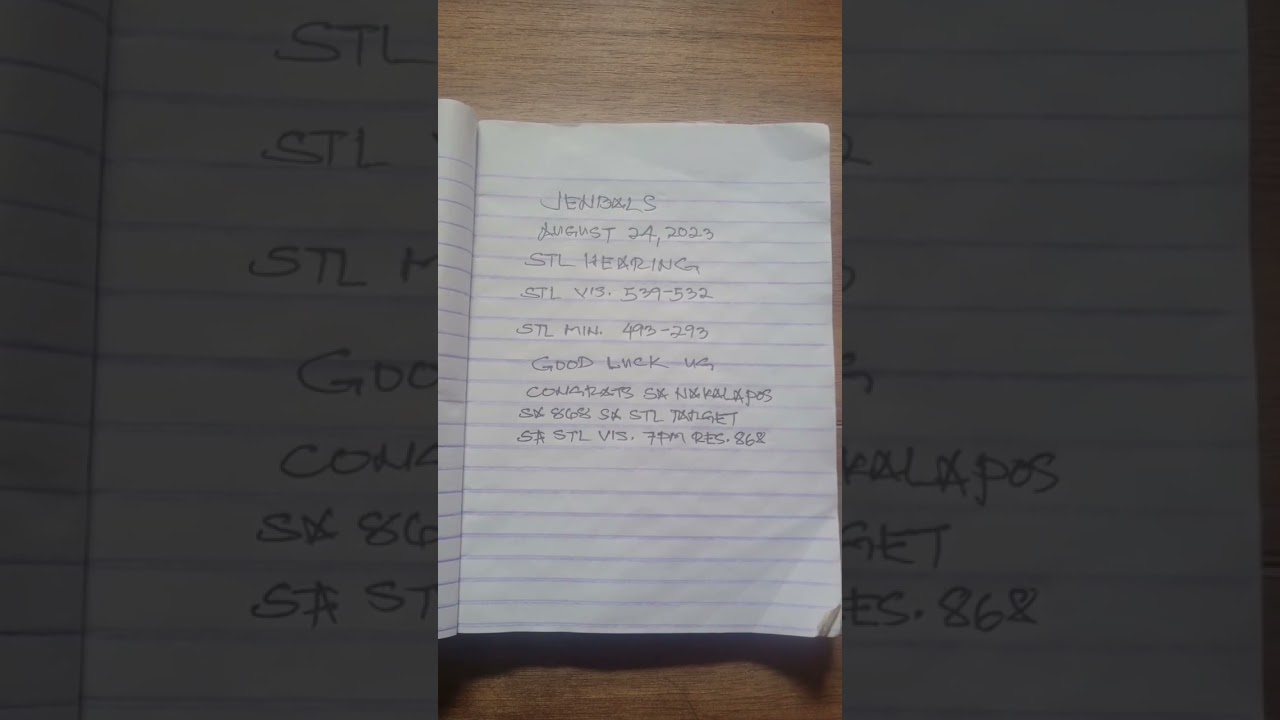 JENBALS
AUGUST 24, 2023
STL HEARING
STL VIS. 539-532
STL MIN. 493-293
GOOD LUCK US
CONGRATS SA NAKALAPOS
SA 868 SA STL TARGET
SA STL VIS. 7PM RES. 868